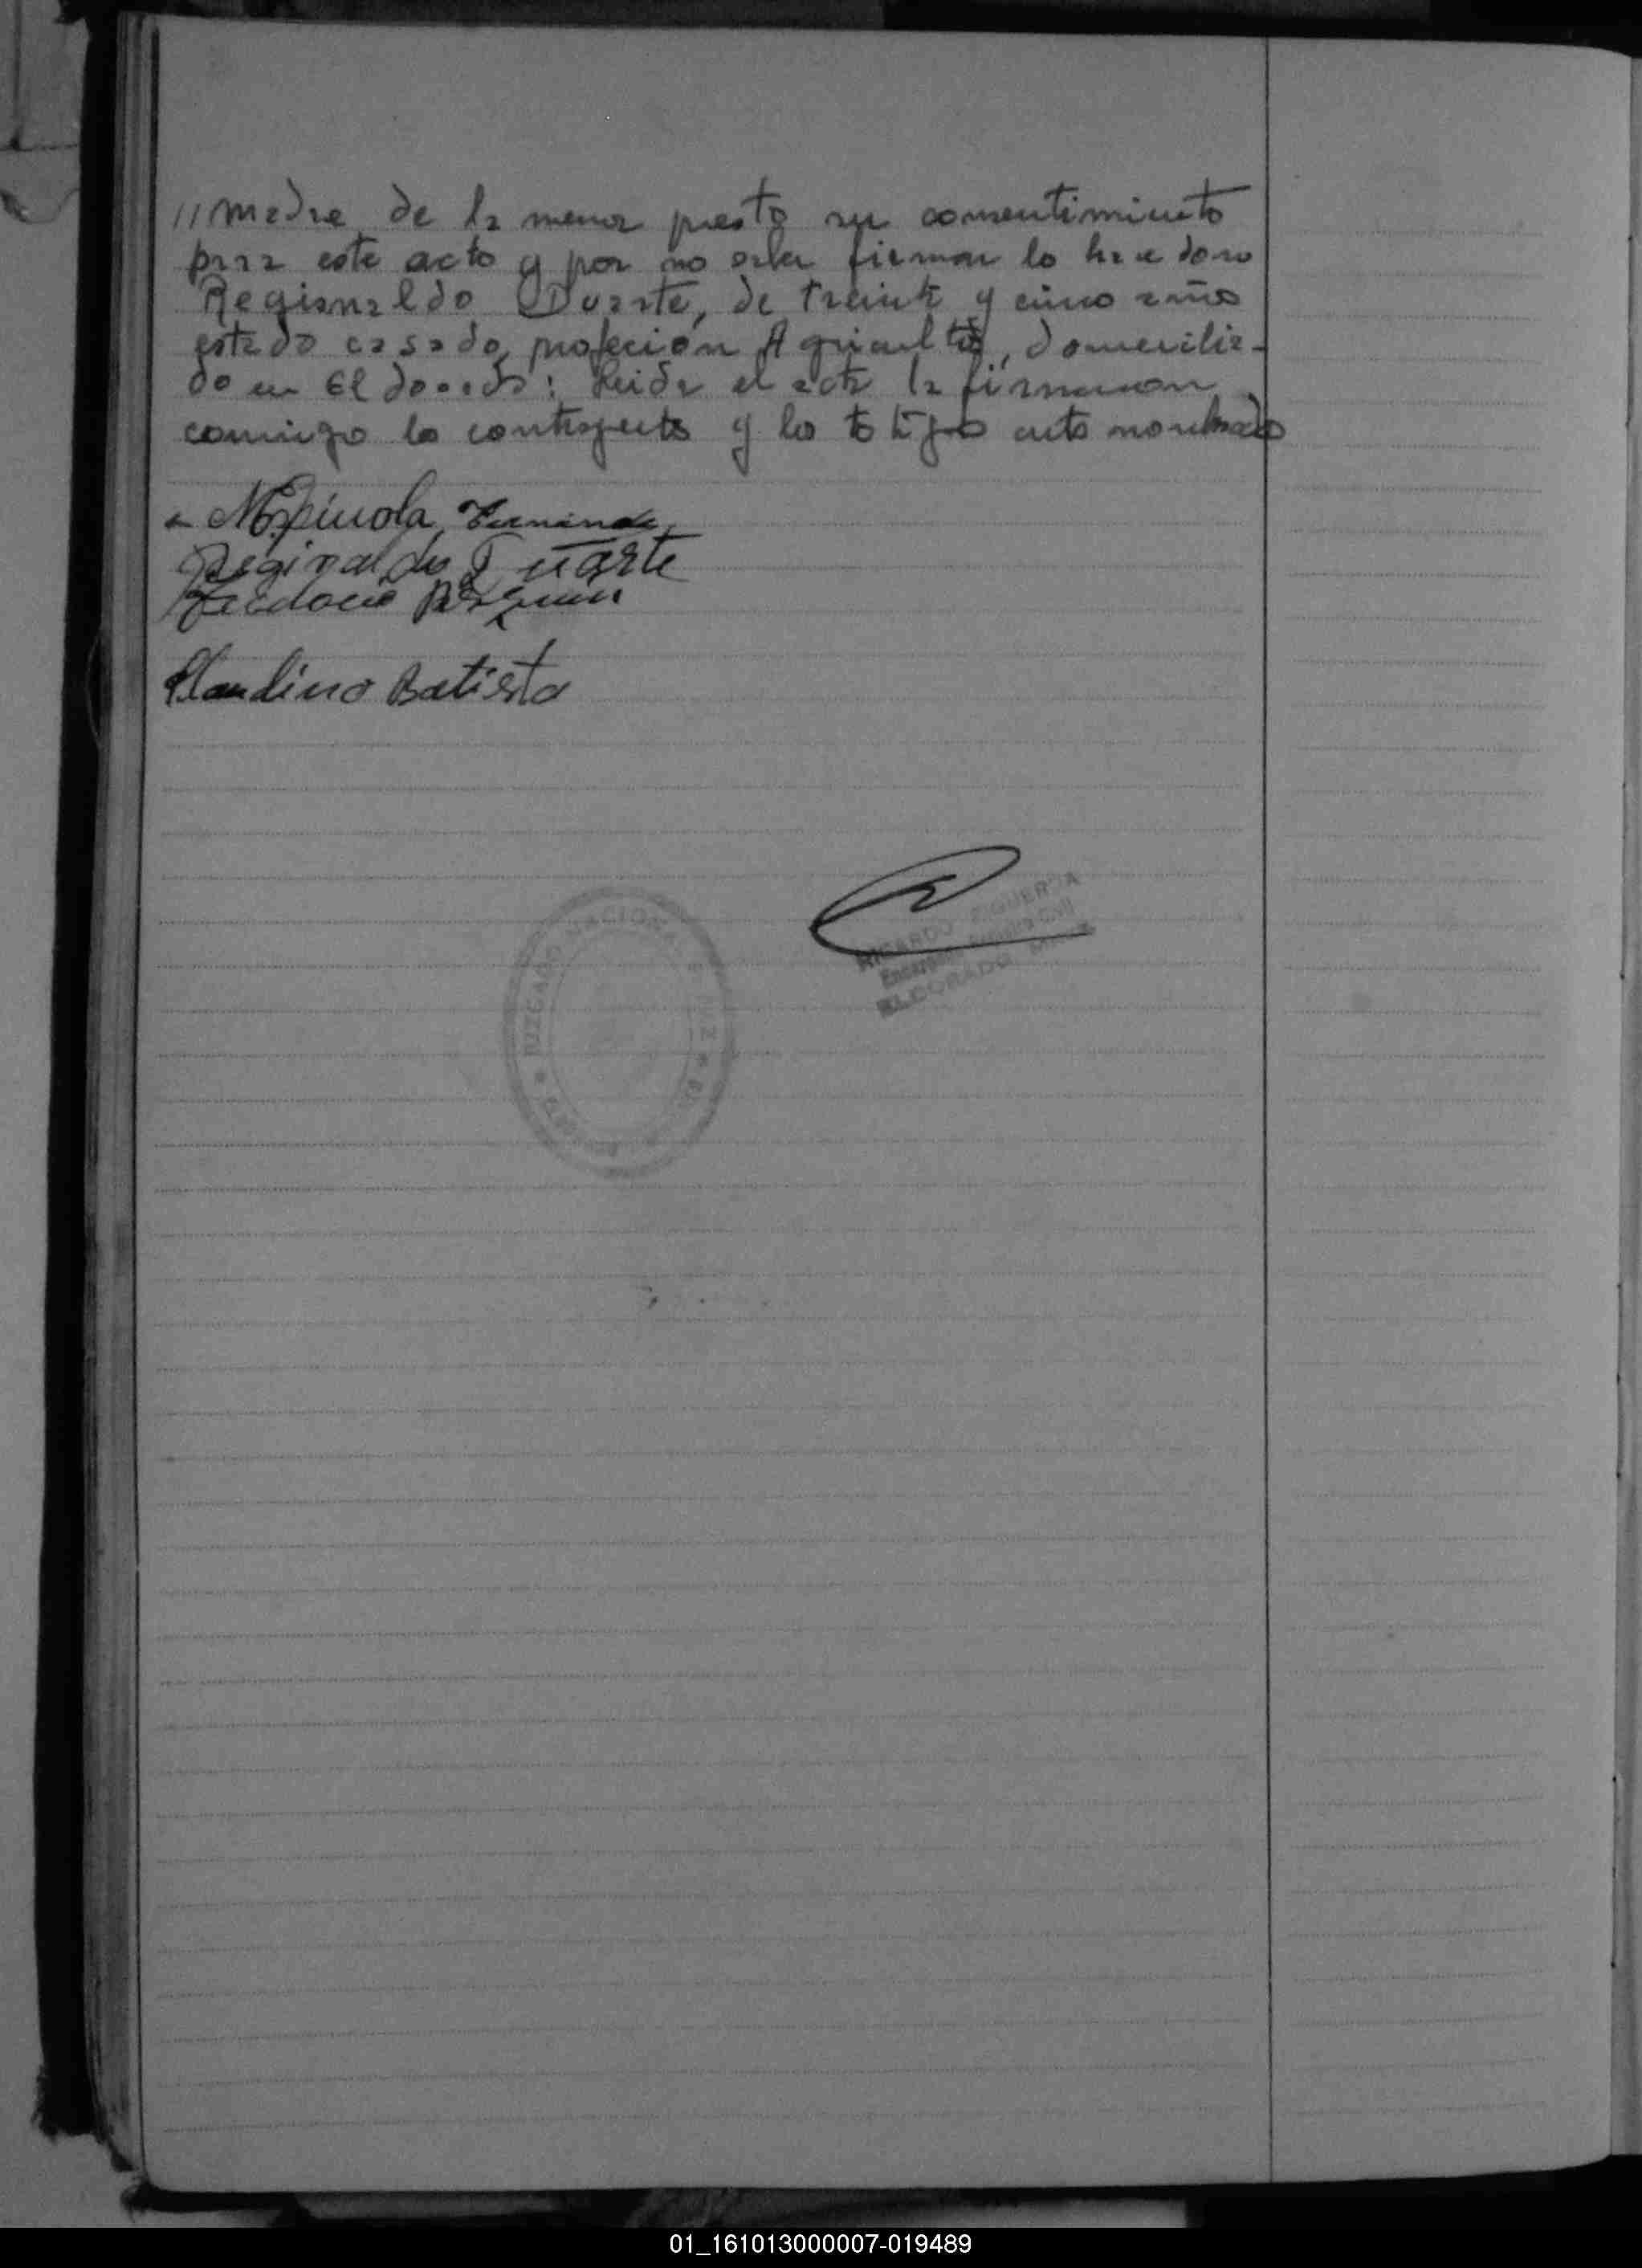 // madre de la menor presto su consentimiento
para este acto y por no saber firmar lo hace don
Reginaldo Duarte, de treinta y cinco años
estado casado, profeción Agricultor, domicilia-
do en Eldorado: Leida el acta la firmaron
conmigo los contrayentes y los testigos ante nombrado
Espinola Fernande
Reginaldo Duarte
Claudino Batista
JUZGADO NACIONAL DE PAZ
RICARDO FIGUEROA
Encargado Registro Civil
ELDORADO
01_161013000007-019489